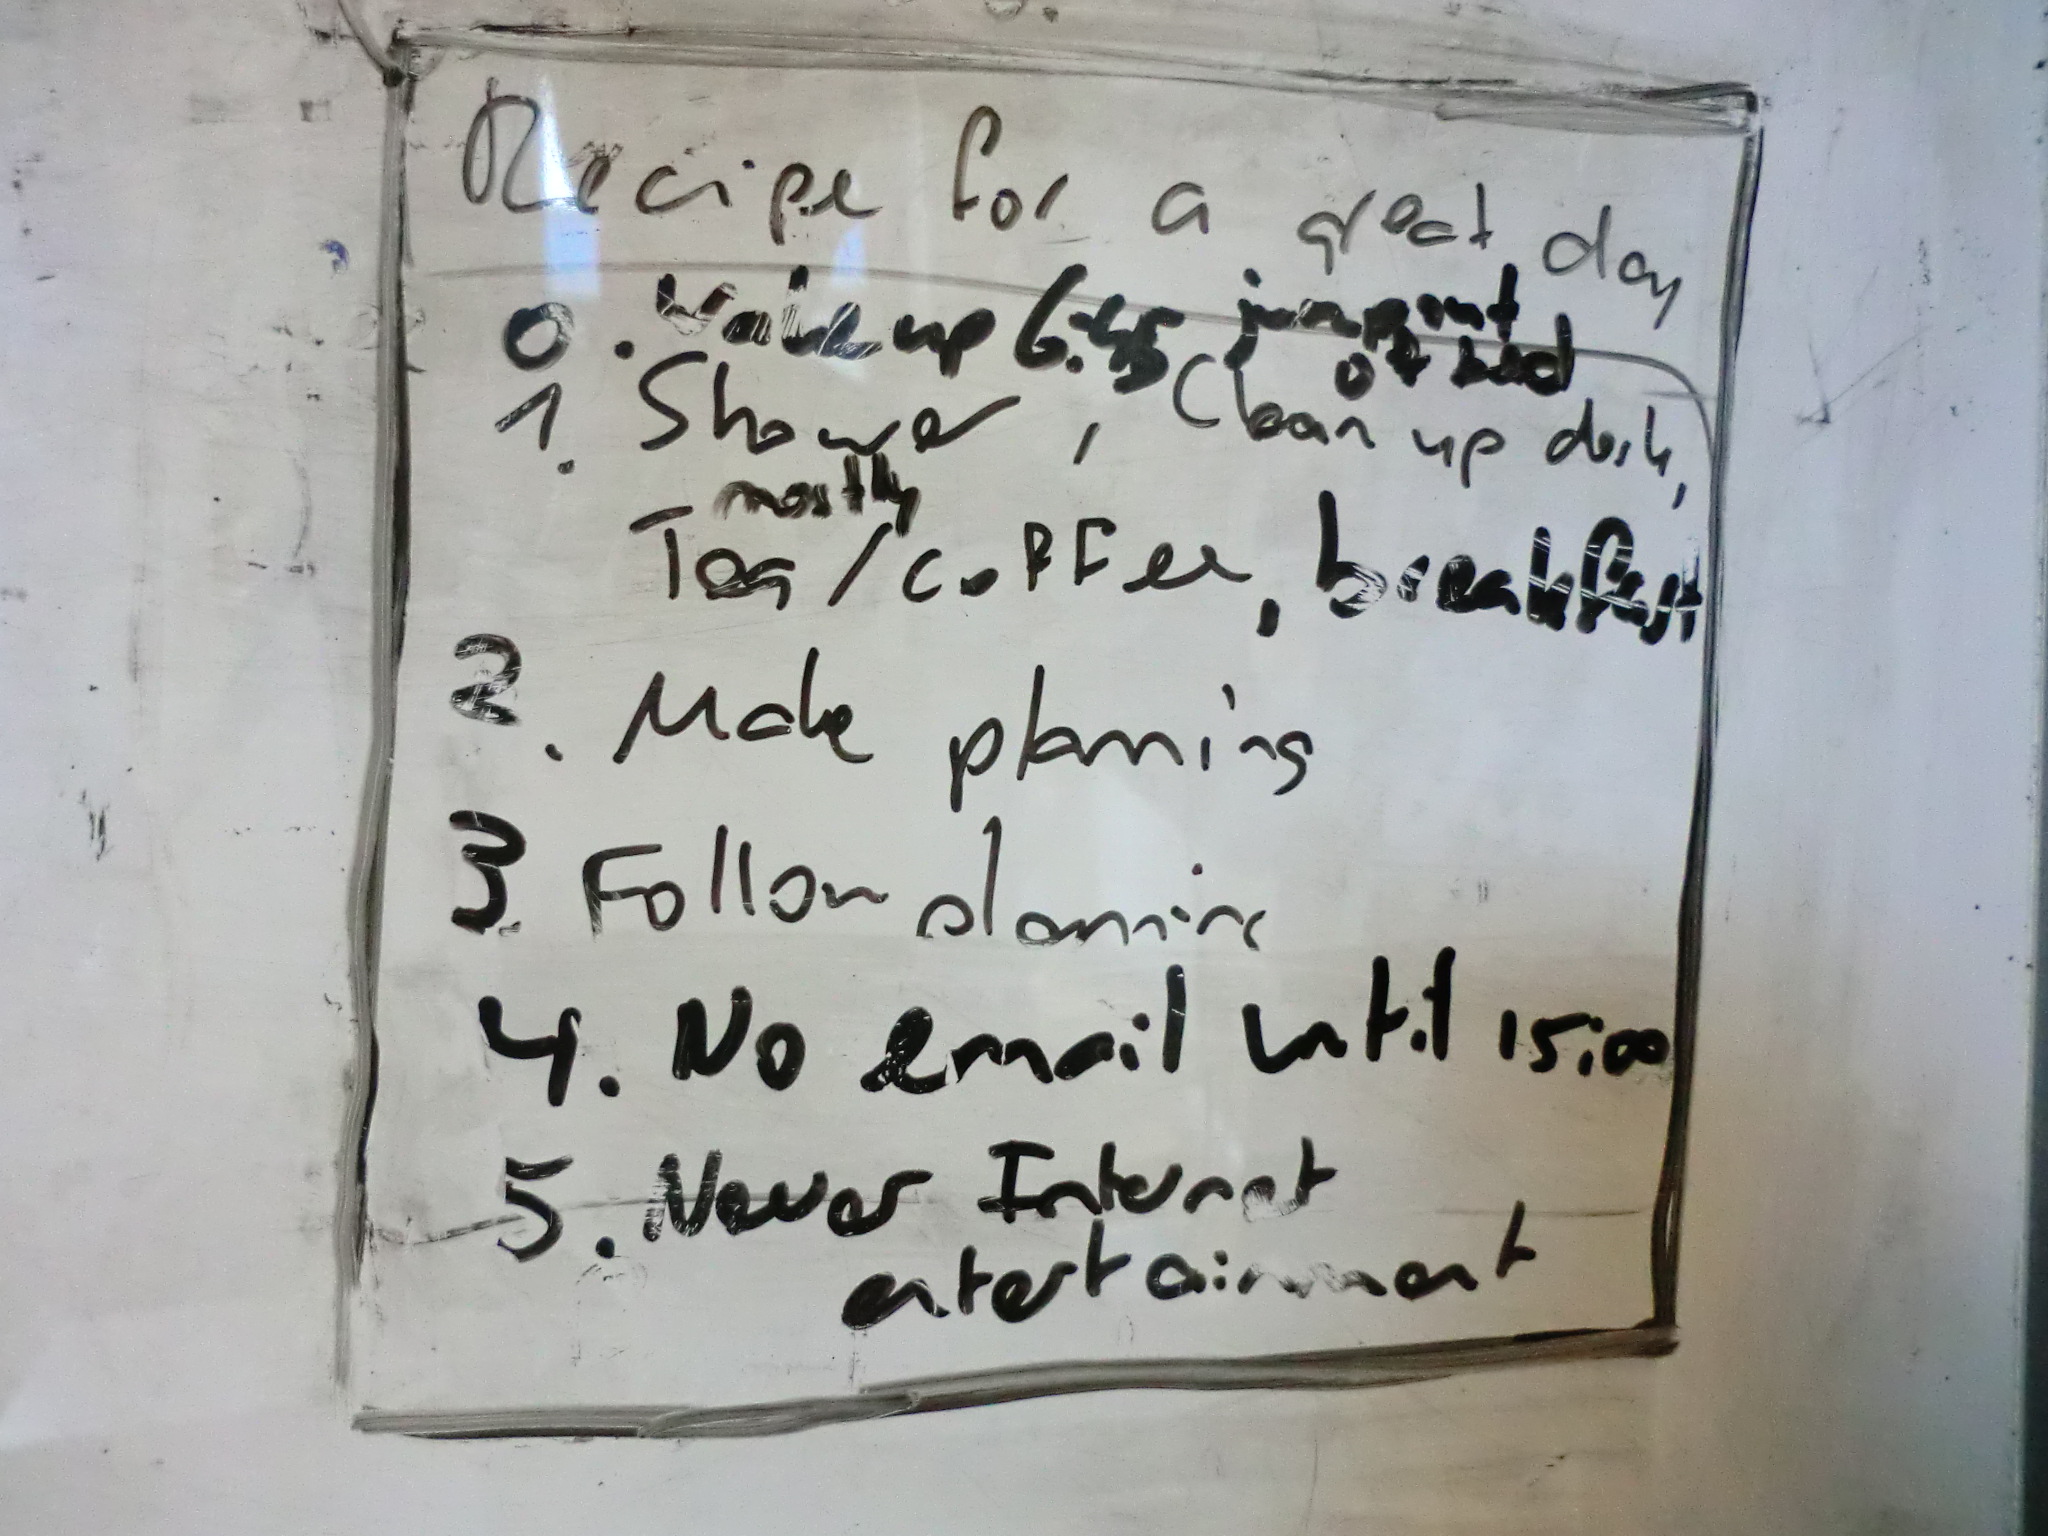 Recipe for a great day
0. Wake up 6:45 jump out
of bed
1. Shower, Clean up desk,
mostly
Tea / coffee, breakfast
2. Make planning
3. Follow planning
4. No email until 15:00
5. Never Internet
entertainment